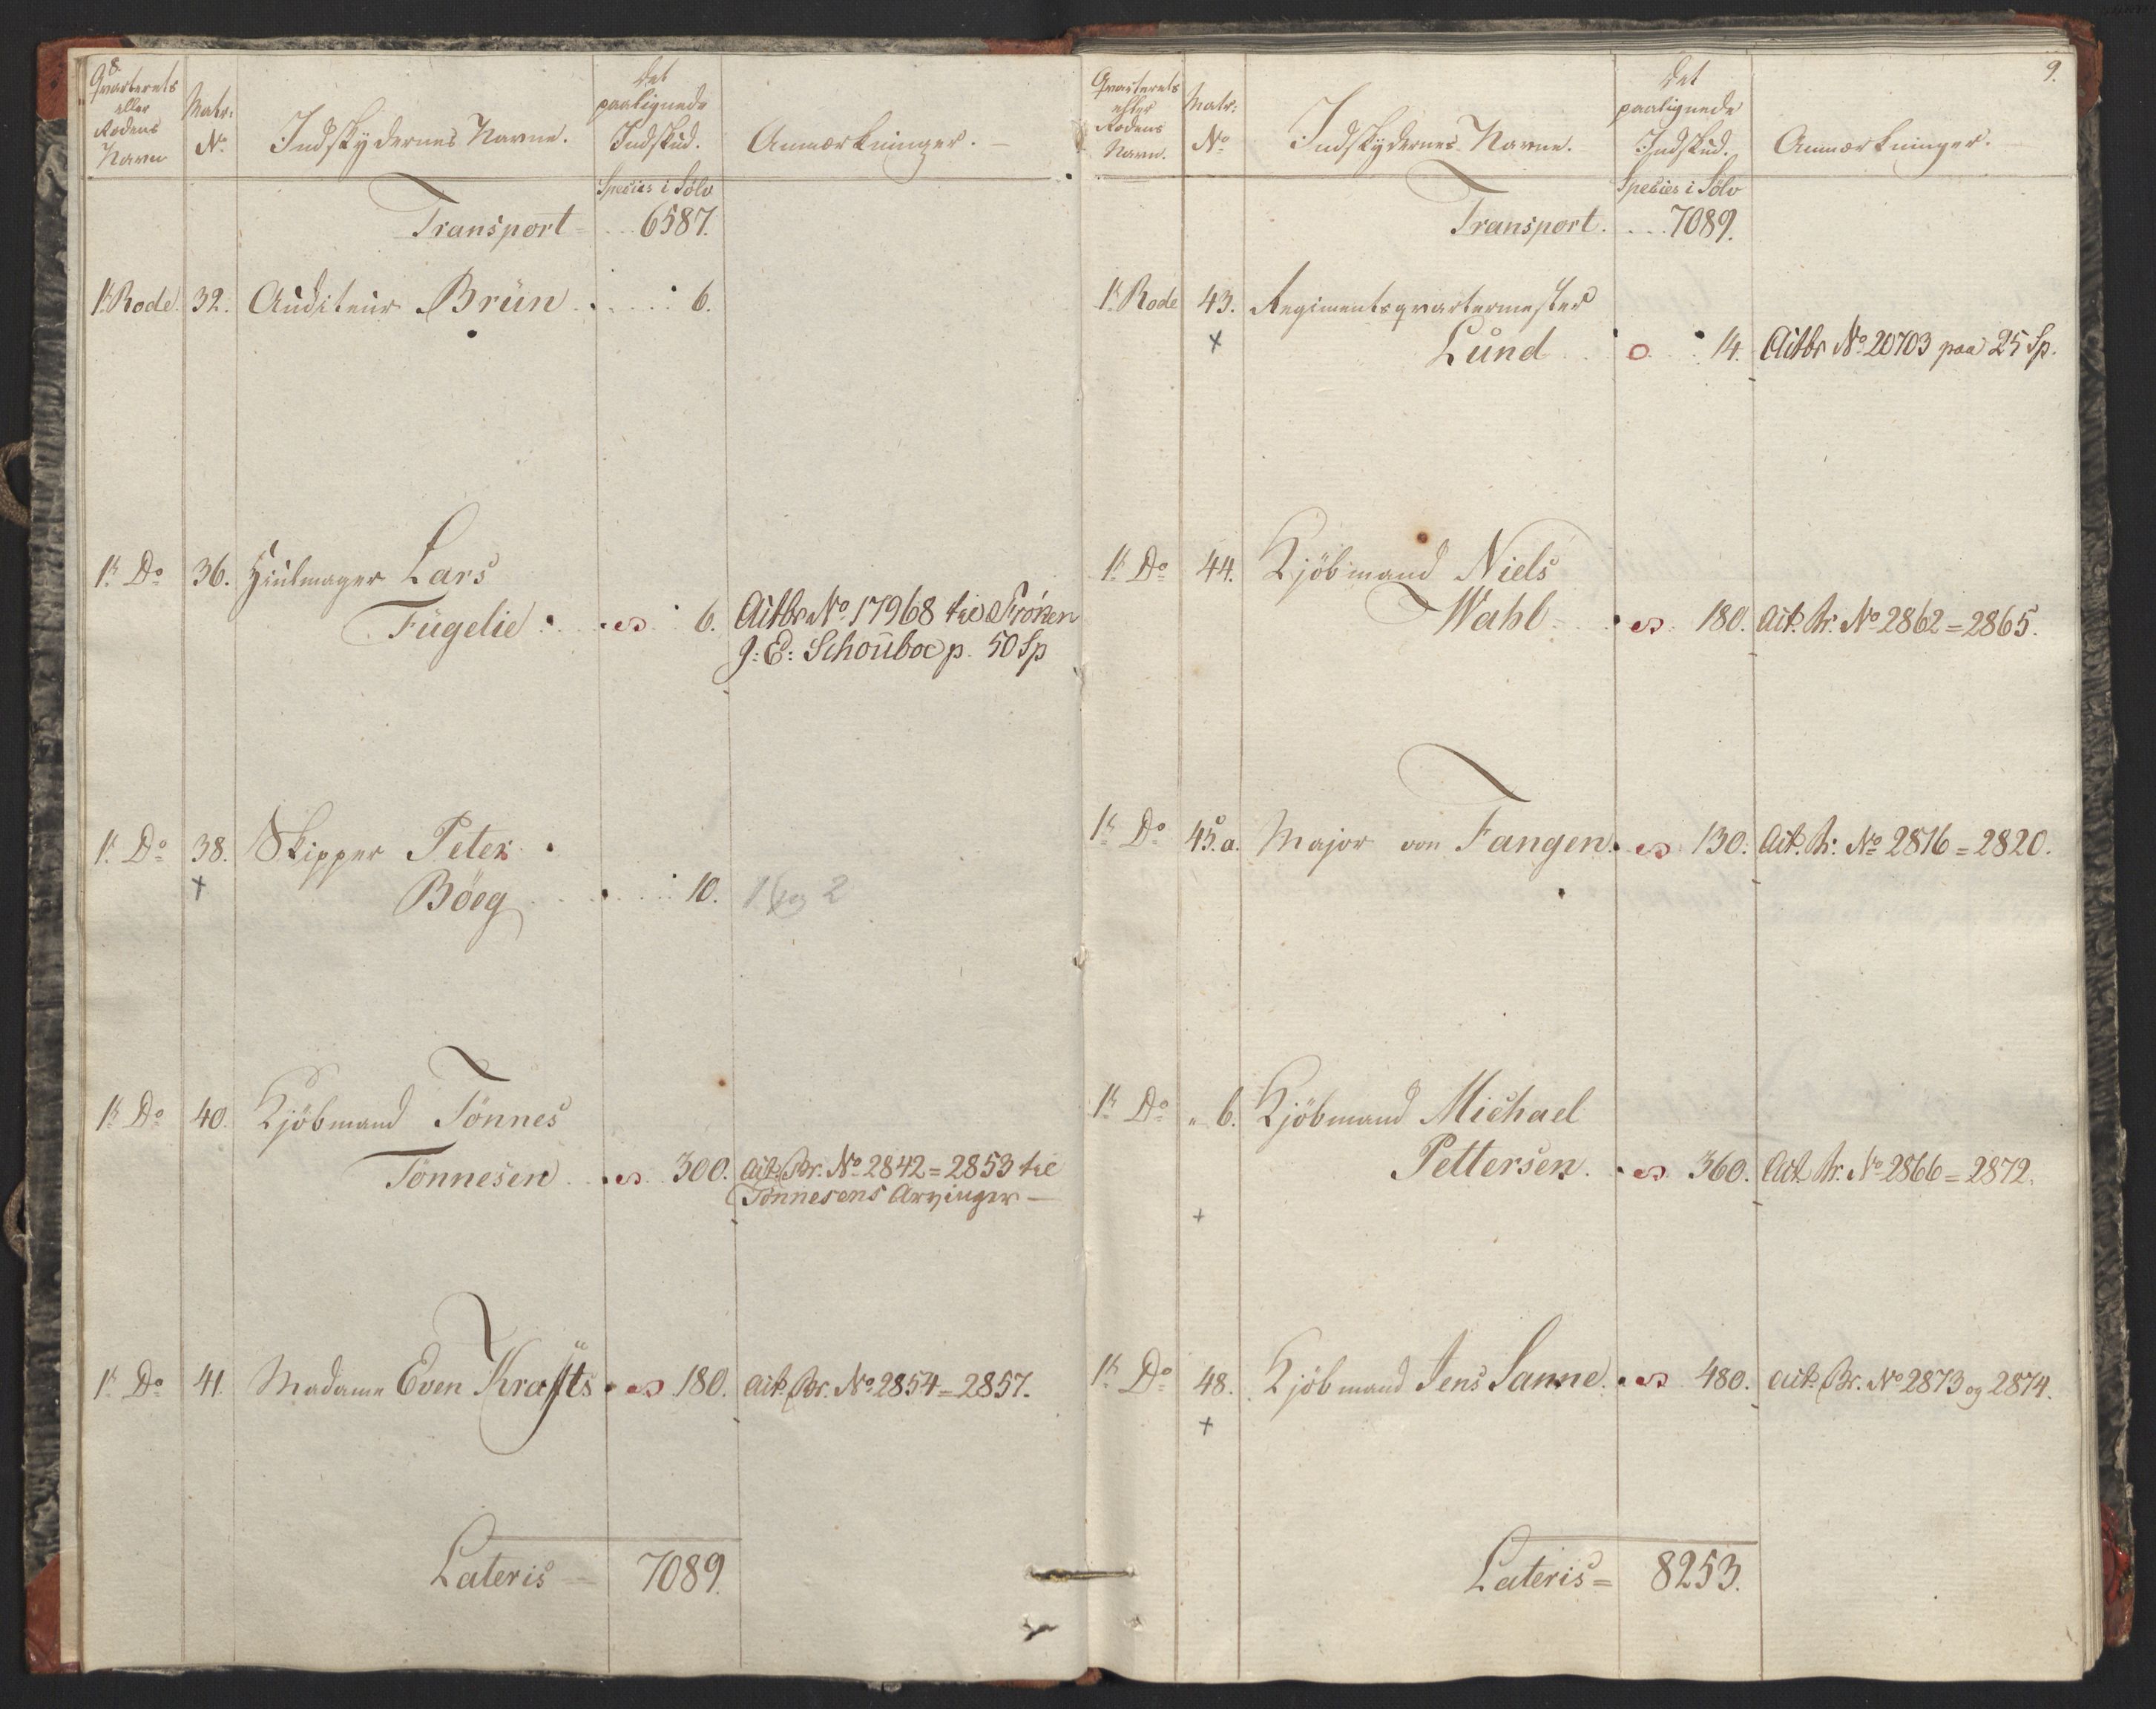 8.
Qvarterets
eller
Rodens
Navn
Matr:
No.
Indskydernes Navne.
Det
paalignede
Indskud.
Anmærkninger.
Species i Sölv
Transport 6587.
1te Rode. 32. Auditeur Brün 6.
1te Do 36. Hiulmager Lars
Fügelie 6. Act Br No 17968 til Fröken
J: E: Schouboe p. 50 Sp
1te Do 38. Skipper Peter
Böeg 10.
1te Do 40. Kjöbmand Tönnes
Tönnesen 300. Act. Br. No 2842 = 2853 til
Tönnesens Arvinger
1te Do 41. Madame Even Krafts 180. Act. Br. No 2854 = 2857.
Lateris 7089.
9.
Qvarterets
eller
Rodens
Navn.
Matr:
No
Indskydernes Navne.
Det
paalignede
Indskud.
Anmærkninger.
Species i Sölv
Transport. 7089.
1te Rode 43. Regimentsqvartermester
Lund 14. Act Br No 20703 paa 25 Sp.
1te Do 44. Kjöbmand Niels
Wahl 180. Act. Br. No 2862 = 2865.
1te Do 45.a. Major von Fangen. 130. Act. Br. No 2816 = 2820.
1te Do " 6. Kjöbmand Michael
Pettersen. 360. Act. Br. No 2866 = 2872.
1te Do 48. Kjöbmand Jens Sanne. 480. Act. Br. No 2873 og 2874.
Lateris = 8253.